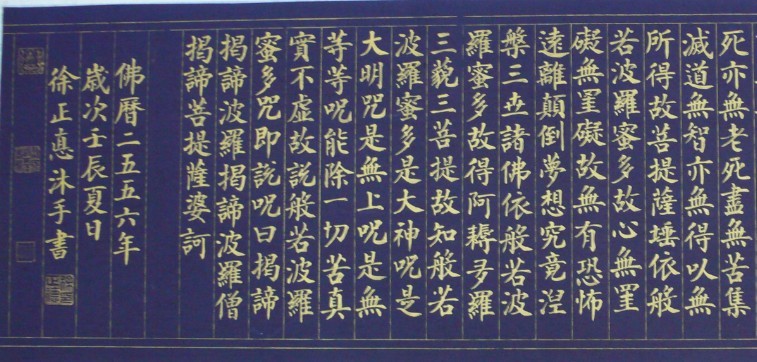 死亦無老死盡無苦集
滅道無智亦無得以無
所得故菩提薩埵依般
若波羅蜜多故心無罣
礙無罣礙故無有恐怖
遠離顛倒夢想究竟涅
槃三世諸佛依般若波
羅蜜多故得阿耨多羅
三藐三菩提故知般若
波羅蜜多是大神呪是
大明咒是無上呪是無
等等呪能除一切苦真
實不虛故說般若波羅
蜜多咒即説呪曰揭諦
揭諦波羅揭諦波羅僧
揭諦菩提薩婆訶
佛曆二五五六年
歲次壬辰夏日
徐正㥁沐手書